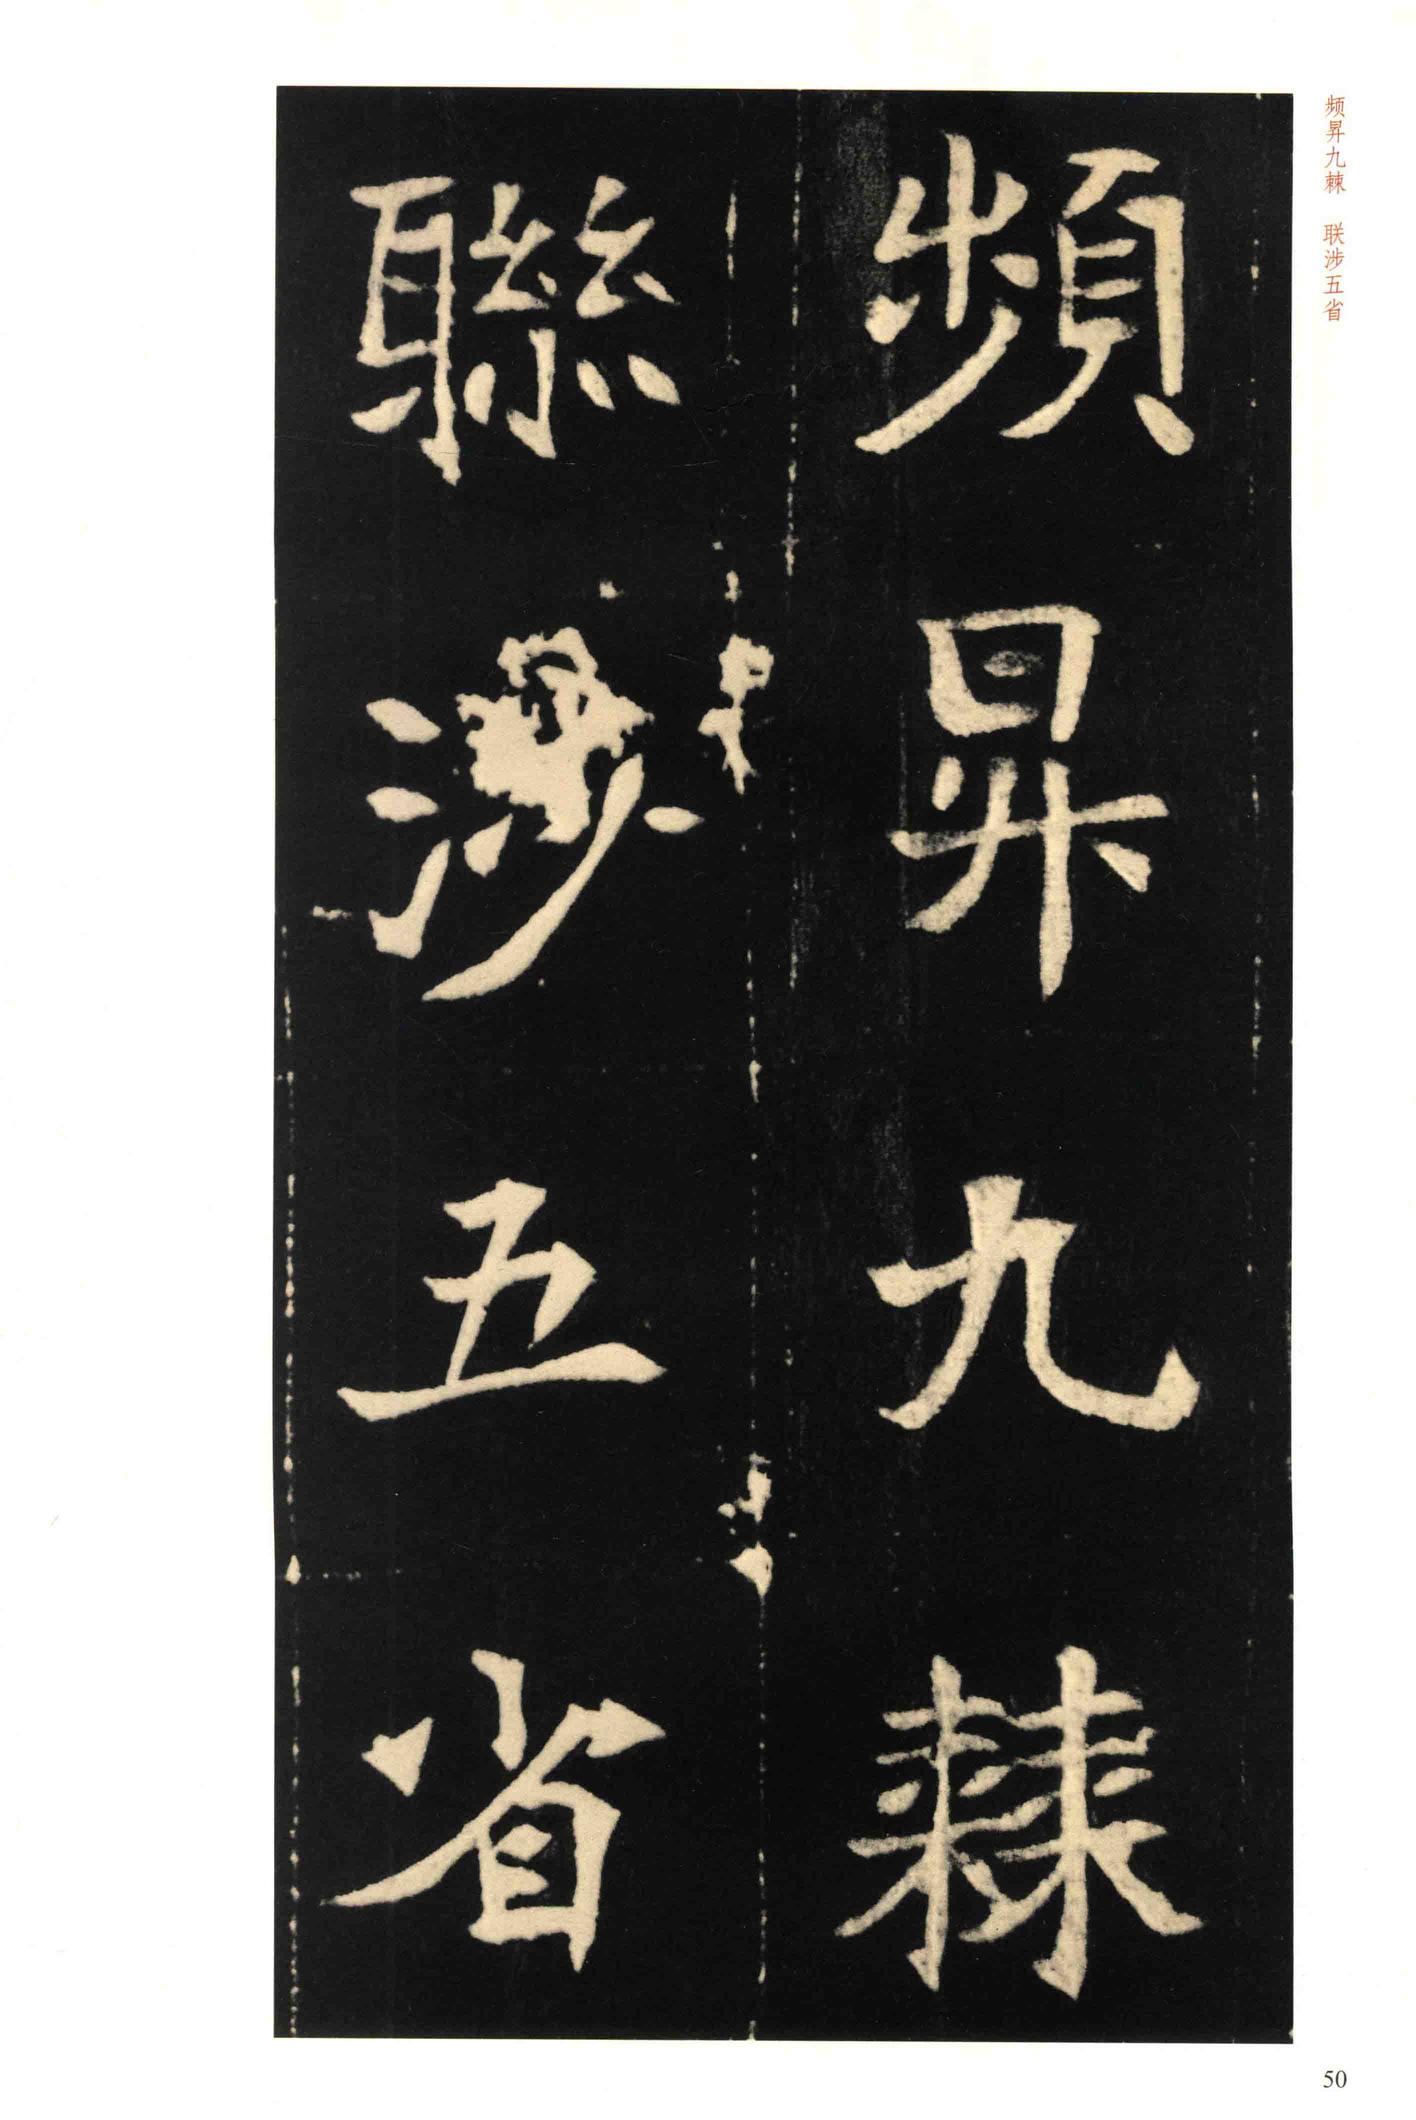 頻昇九棘
聯涉五省
频昇九棘　联涉五省
50